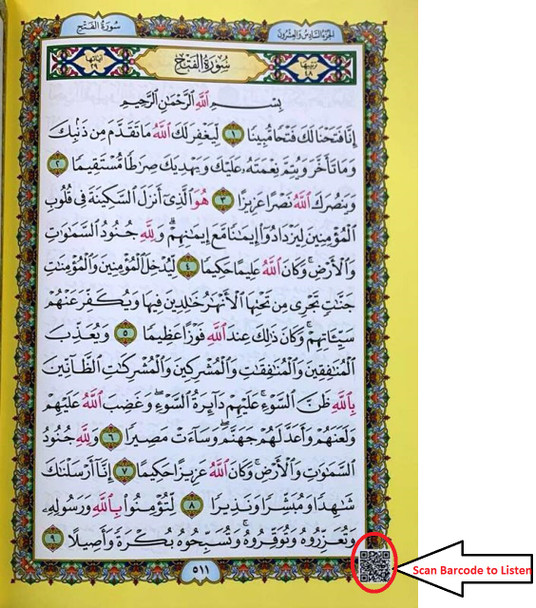 سُورَةُ الفَتْحِ
الجُزءُ السَّادِسُ وَالعِشْرُونَ
ترتيبها ٤٨
سُورَةُ الفَتْحِ
آياتها ٢٩
بِسْمِ اللَّهِ الرَّحْمَٰنِ الرَّحِيمِ
إِنَّا فَتَحْنَا لَكَ فَتْحًا مُّبِينًا ١ لِّيَغْفِرَ لَكَ اللَّهُ مَا تَقَدَّمَ مِن ذَنۢبِكَ
وَمَا تَأَخَّرَ وَيُتِمَّ نِعْمَتَهُۥ عَلَيْكَ وَيَهْدِيَكَ صِرَٰطًا مُّسْتَقِيمًا ٢
وَيَنصُرَكَ اللَّهُ نَصْرًا عَزِيزًا ٣ هُوَ الَّذِىٓ أَنزَلَ السَّكِينَةَ فِى قُلُوبِ
الْمُؤْمِنِينَ لِيَزْدَادُوٓا۟ إِيمَٰنًا مَّعَ إِيمَٰنِهِمْ ۗ وَلِلَّهِ جُنُودُ السَّمَٰوَٰتِ
وَالْأَرْضِ ۚ وَكَانَ اللَّهُ عَلِيمًا حَكِيمًا ٤ لِّيُدْخِلَ الْمُؤْمِنِينَ وَالْمُؤْمِنَٰتِ
جَنَّٰتٍ تَجْرِى مِن تَحْتِهَا الْأَنْهَٰرُ خَٰلِدِينَ فِيهَا وَيُكَفِّرَ عَنْهُمْ
سَيِّـَٔاتِهِمْ ۚ وَكَانَ ذَٰلِكَ عِندَ اللَّهِ فَوْزًا عَظِيمًا ٥ وَيُعَذِّبَ
الْمُنَٰفِقِينَ وَالْمُنَٰفِقَٰتِ وَالْمُشْرِكِينَ وَالْمُشْرِكَٰتِ الظَّآنِّينَ
بِاللَّهِ ظَنَّ السَّوْءِ ۚ عَلَيْهِمْ دَآئِرَةُ السَّوْءِ ۖ وَغَضِبَ اللَّهُ عَلَيْهِمْ
وَلَعَنَهُمْ وَأَعَدَّ لَهُمْ جَهَنَّمَ ۖ وَسَآءَتْ مَصِيرًا ٦ وَلِلَّهِ جُنُودُ
السَّمَٰوَٰتِ وَالْأَرْضِ ۚ وَكَانَ اللَّهُ عَزِيزًا حَكِيمًا ٧ إِنَّآ أَرْسَلْنَٰكَ
شَٰهِدًا وَمُبَشِّرًا وَنَذِيرًا ٨ لِّتُؤْمِنُوا۟ بِاللَّهِ وَرَسُولِهِۦ
وَتُعَزِّرُوهُ وَتُوَقِّرُوهُ ۚ وَتُسَبِّحُوهُ بُكْرَةً وَأَصِيلًا ٩
٥١١
Scan Barcode to Listen